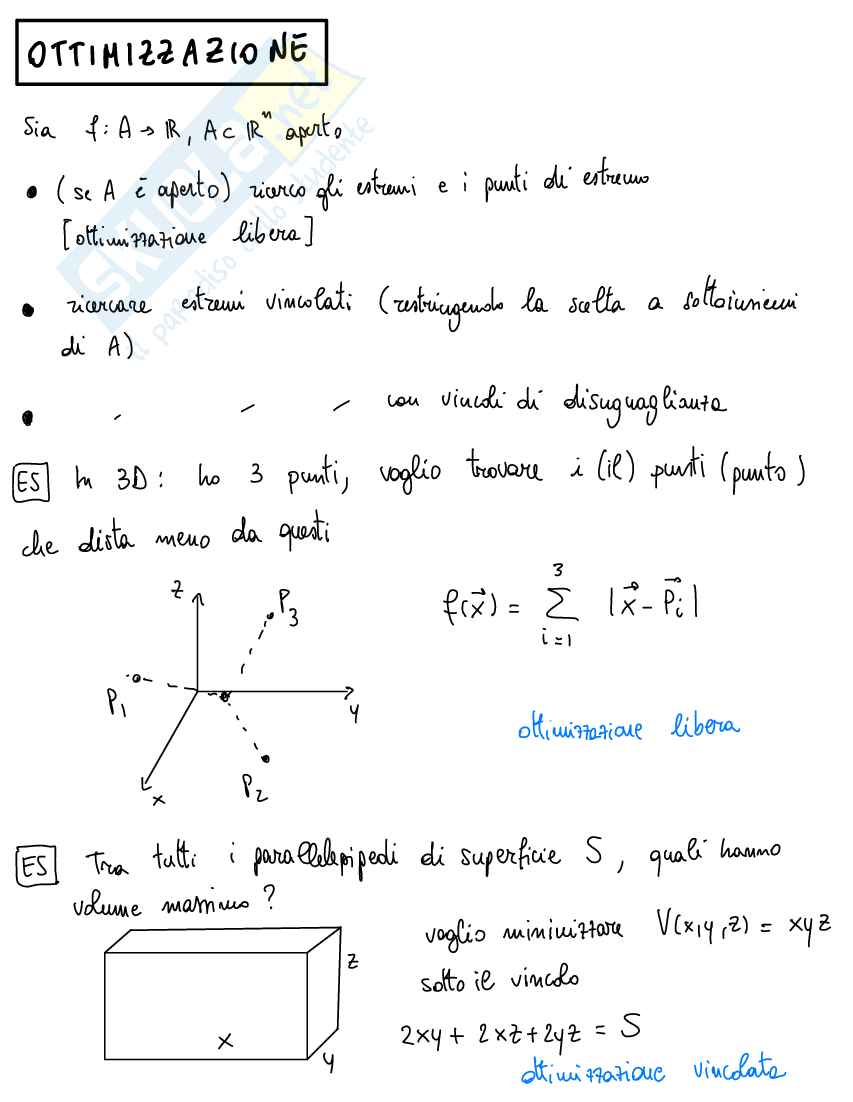 OTTIMIZZAZIONE
Sia f: A → ℝ, A ⊂ ℝⁿ aperto
• (se A è aperto) ricerco gli estremi e i punti di estremo
[ottimizzazione libera]
• ricercare estremi vincolati (restringendo la scelta a sottoinsiemi
di A)
• ― ― ― con vincoli di disuguaglianza
ES In 3D: ho 3 punti, voglio trovare i (il) punti (punto)
che dista meno da questi
z
P₃
P₁
y
x
P₂
f(x⃗) = ∑_{i=1}^{3} |x⃗ - P⃗ᵢ|
ottimizzazione libera
ES Tra tutti i parallelepipedi di superficie S, quali hanno
volume massimo?
z
x
y
voglio minimizzare V(x,y,z) = xyz
sotto il vincolo
2xy + 2xz + 2yz = S
ottimizzazione vincolata
skuola.net
il paradiso dello studente